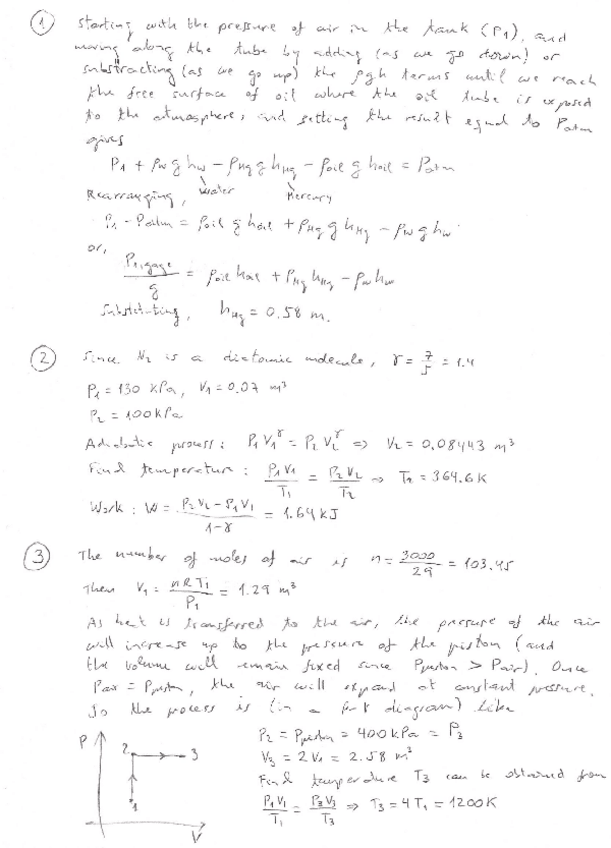 1 Starting with the pressure of air in the tank (P1), and
moving along the tube by adding (as we go down) or
substracting (as we go up) the ρgh terms until we reach
the free surface of oil where the oil tube is exposed
to the atmosphere, and setting the result equal to Patm
gives
P1 + ρw g hw - ρHg g hHg - ρoil g hoil = Patm
Rearranging, Water Mercury
P1 - Patm = ρoil g hoil + ρHg g hHg - ρw g hw
or,
P1,gage / g = ρoil hoil + ρHg hHg - ρw hw
Substituting, hHg = 0.58 m.
2 Since N2 is a diatomic molecule, γ = 7/5 = 1.4
P1 = 130 kPa, V1 = 0.07 m³
P2 = 100 kPa
Adiabatic process: P1 V1^γ = P2 V2^γ ⇒ V2 = 0.08443 m³
Final temperature: P1 V1 / T1 = P2 V2 / T2 ⇒ T2 = 364.6 K
Work: W = P2 V2 - P1 V1 / 1-γ = 1.64 kJ
3 The number of moles of air is n = 3000 / 29 = 103.45
Then V1 = nRT1 / P1 = 1.29 m³
As heat is transferred to the air, the pressure of the air
will increase up to the pressure of the piston (and
the volume will remain fixed since Ppiston > Pair). Once
Pair = Ppiston, the air will expand at constant pressure.
So the process is (in a P-V diagram) like
P 2 3 1 V
P2 = Ppiston = 400 kPa = P3
V3 = 2V1 = 2.58 m³
Final temperature T3 can be obtained from
P1 V1 / T1 = P3 V3 / T3 ⇒ T3 = 4T1 = 1200K